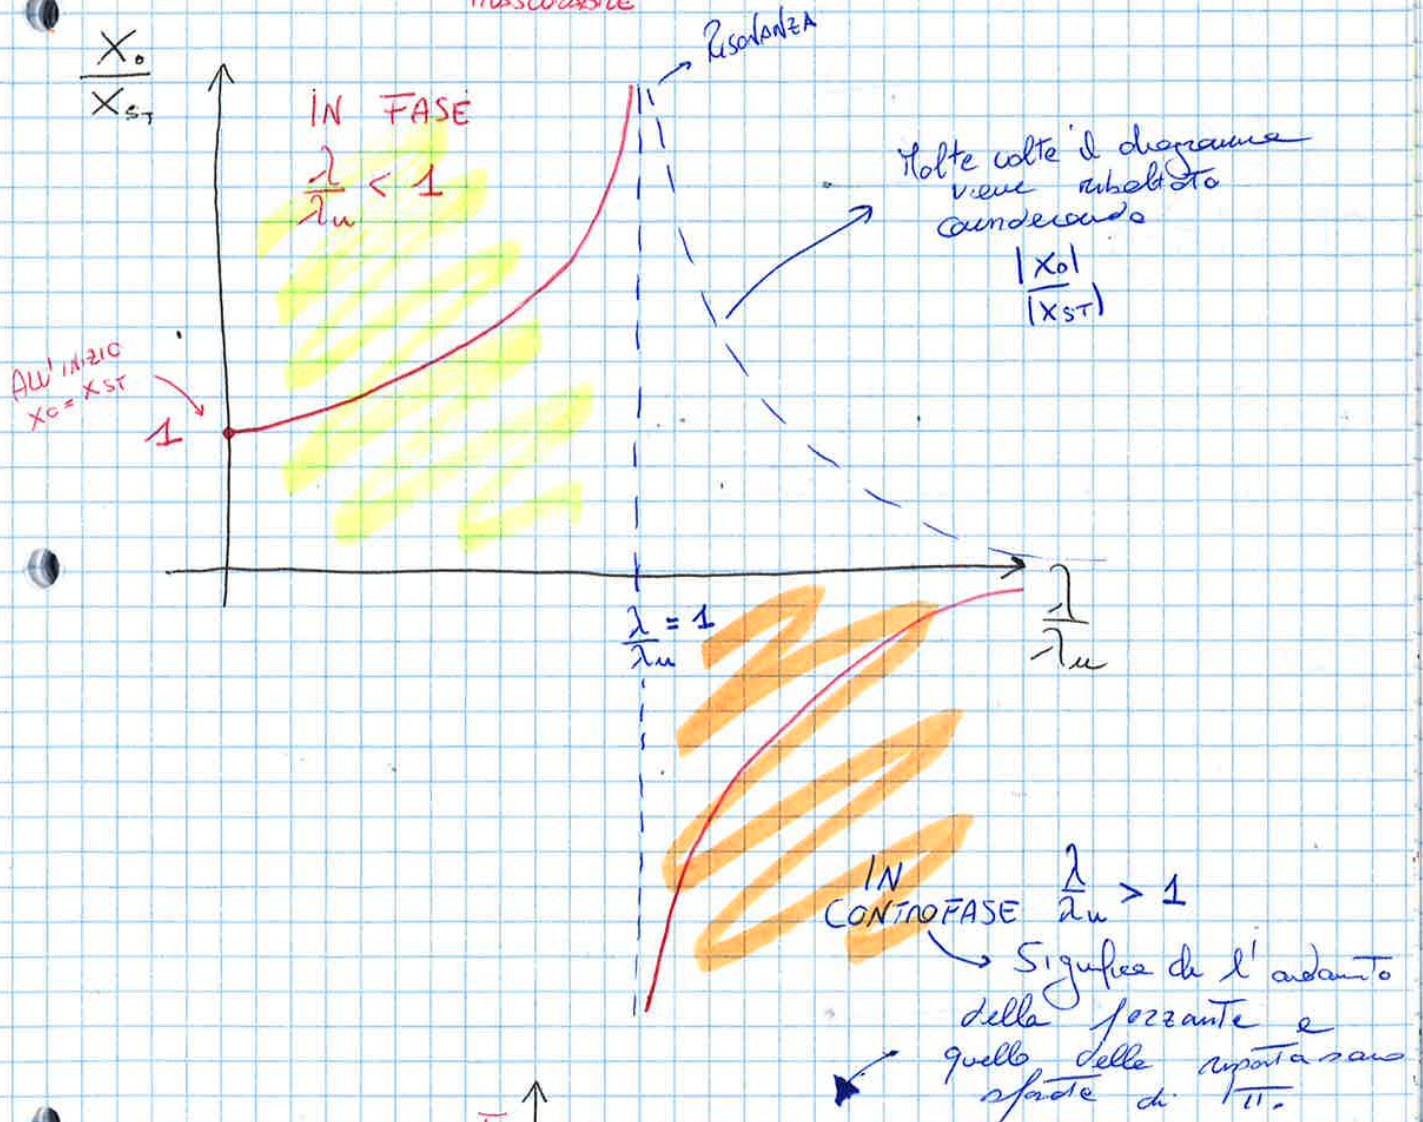 TRASCURABILE
RISONANZA
X₀
X_ST
IN FASE
λ/λn < 1
Molte volte il diagramma
viene ribaltato
considerando
|X₀|
|X_ST|
ALL'INIZIO
X₀ = X_ST
1
λ/λn = 1
λ/λn
IN
CONTROFASE λ/λn > 1
Significa che l'andamento
della forzante e
quello della risposta sono
sfasate di π.